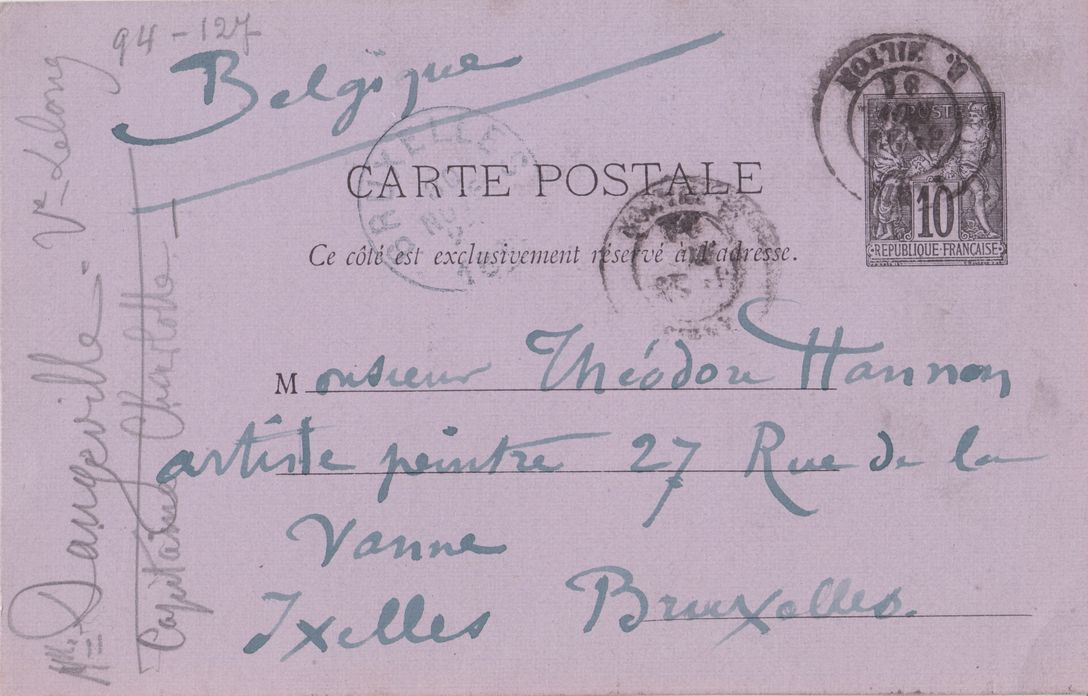 94-127
Belgique
BRUXELLES
R. MILTON
POSTE
CARTE POSTALE
10
REPUBLIQUE FRANÇAISE
Ce côté est exclusivement réservé à l'adresse.
Monsieur Théodore Hannon
artiste peintre 27 Rue de la
Vanne
Ixelles Bruxelles.
Mlle Dangeville - Ve Lelong
Capitaine Charlotte -